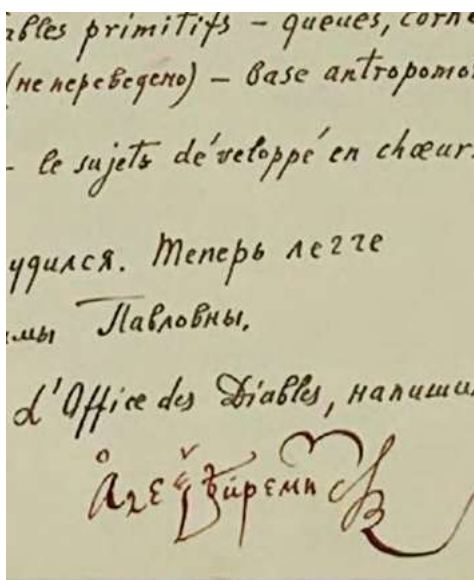 ables primitifs – queues, corne
(не переведено) – Base antropomo
– le sujets développé en chœur.
удился. Теперь легче
мы Павловны.
d'Office des Diables, напиши